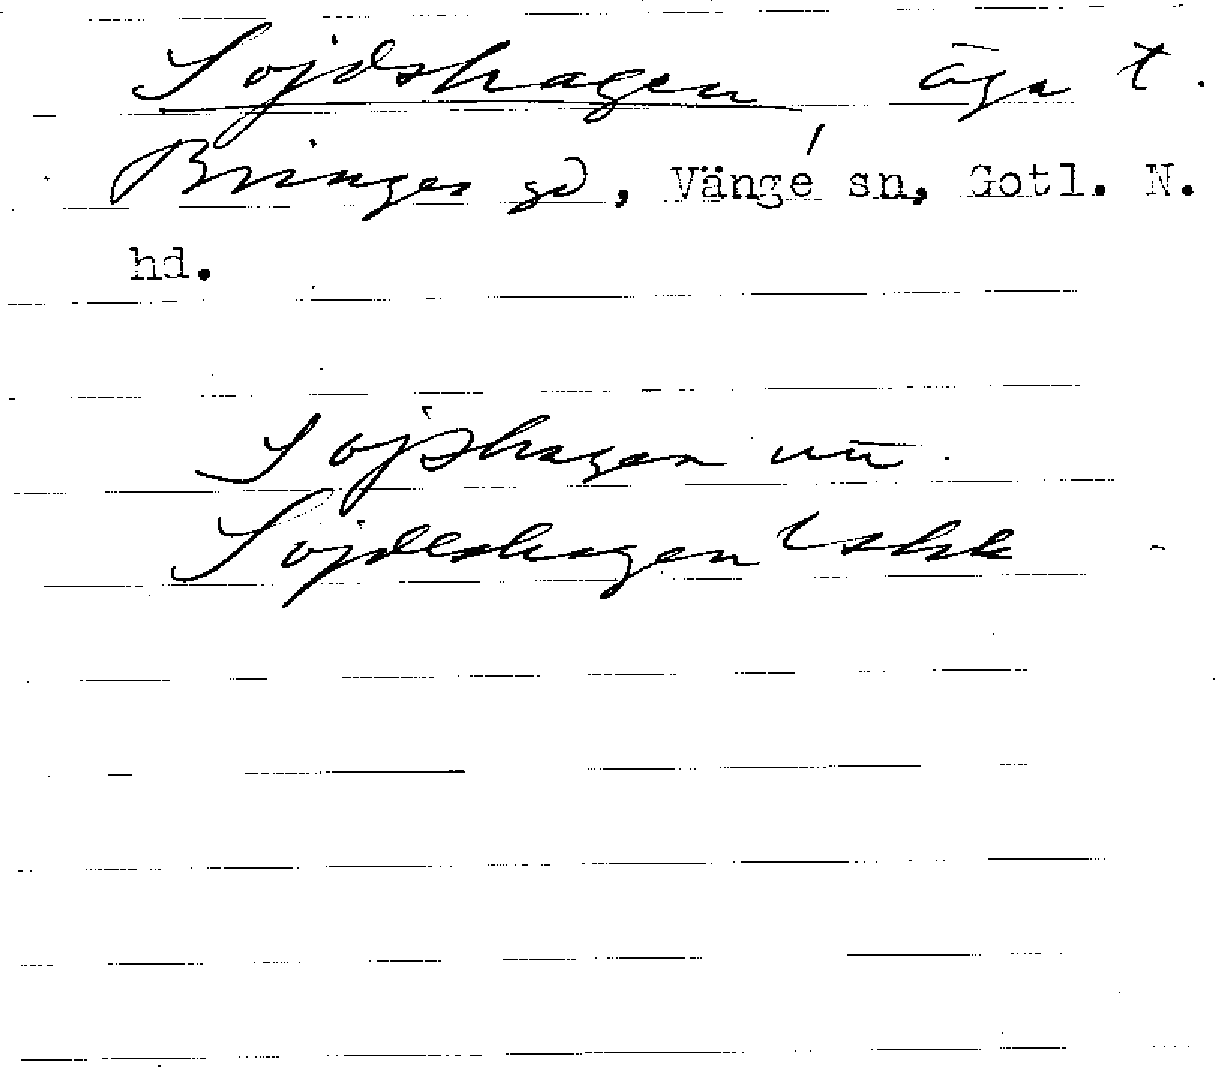 Sojdshagen äga t.
Bringes gd, Vänge sn, Gotl. N.
hd.
Sojshagen
Sojdeshagen